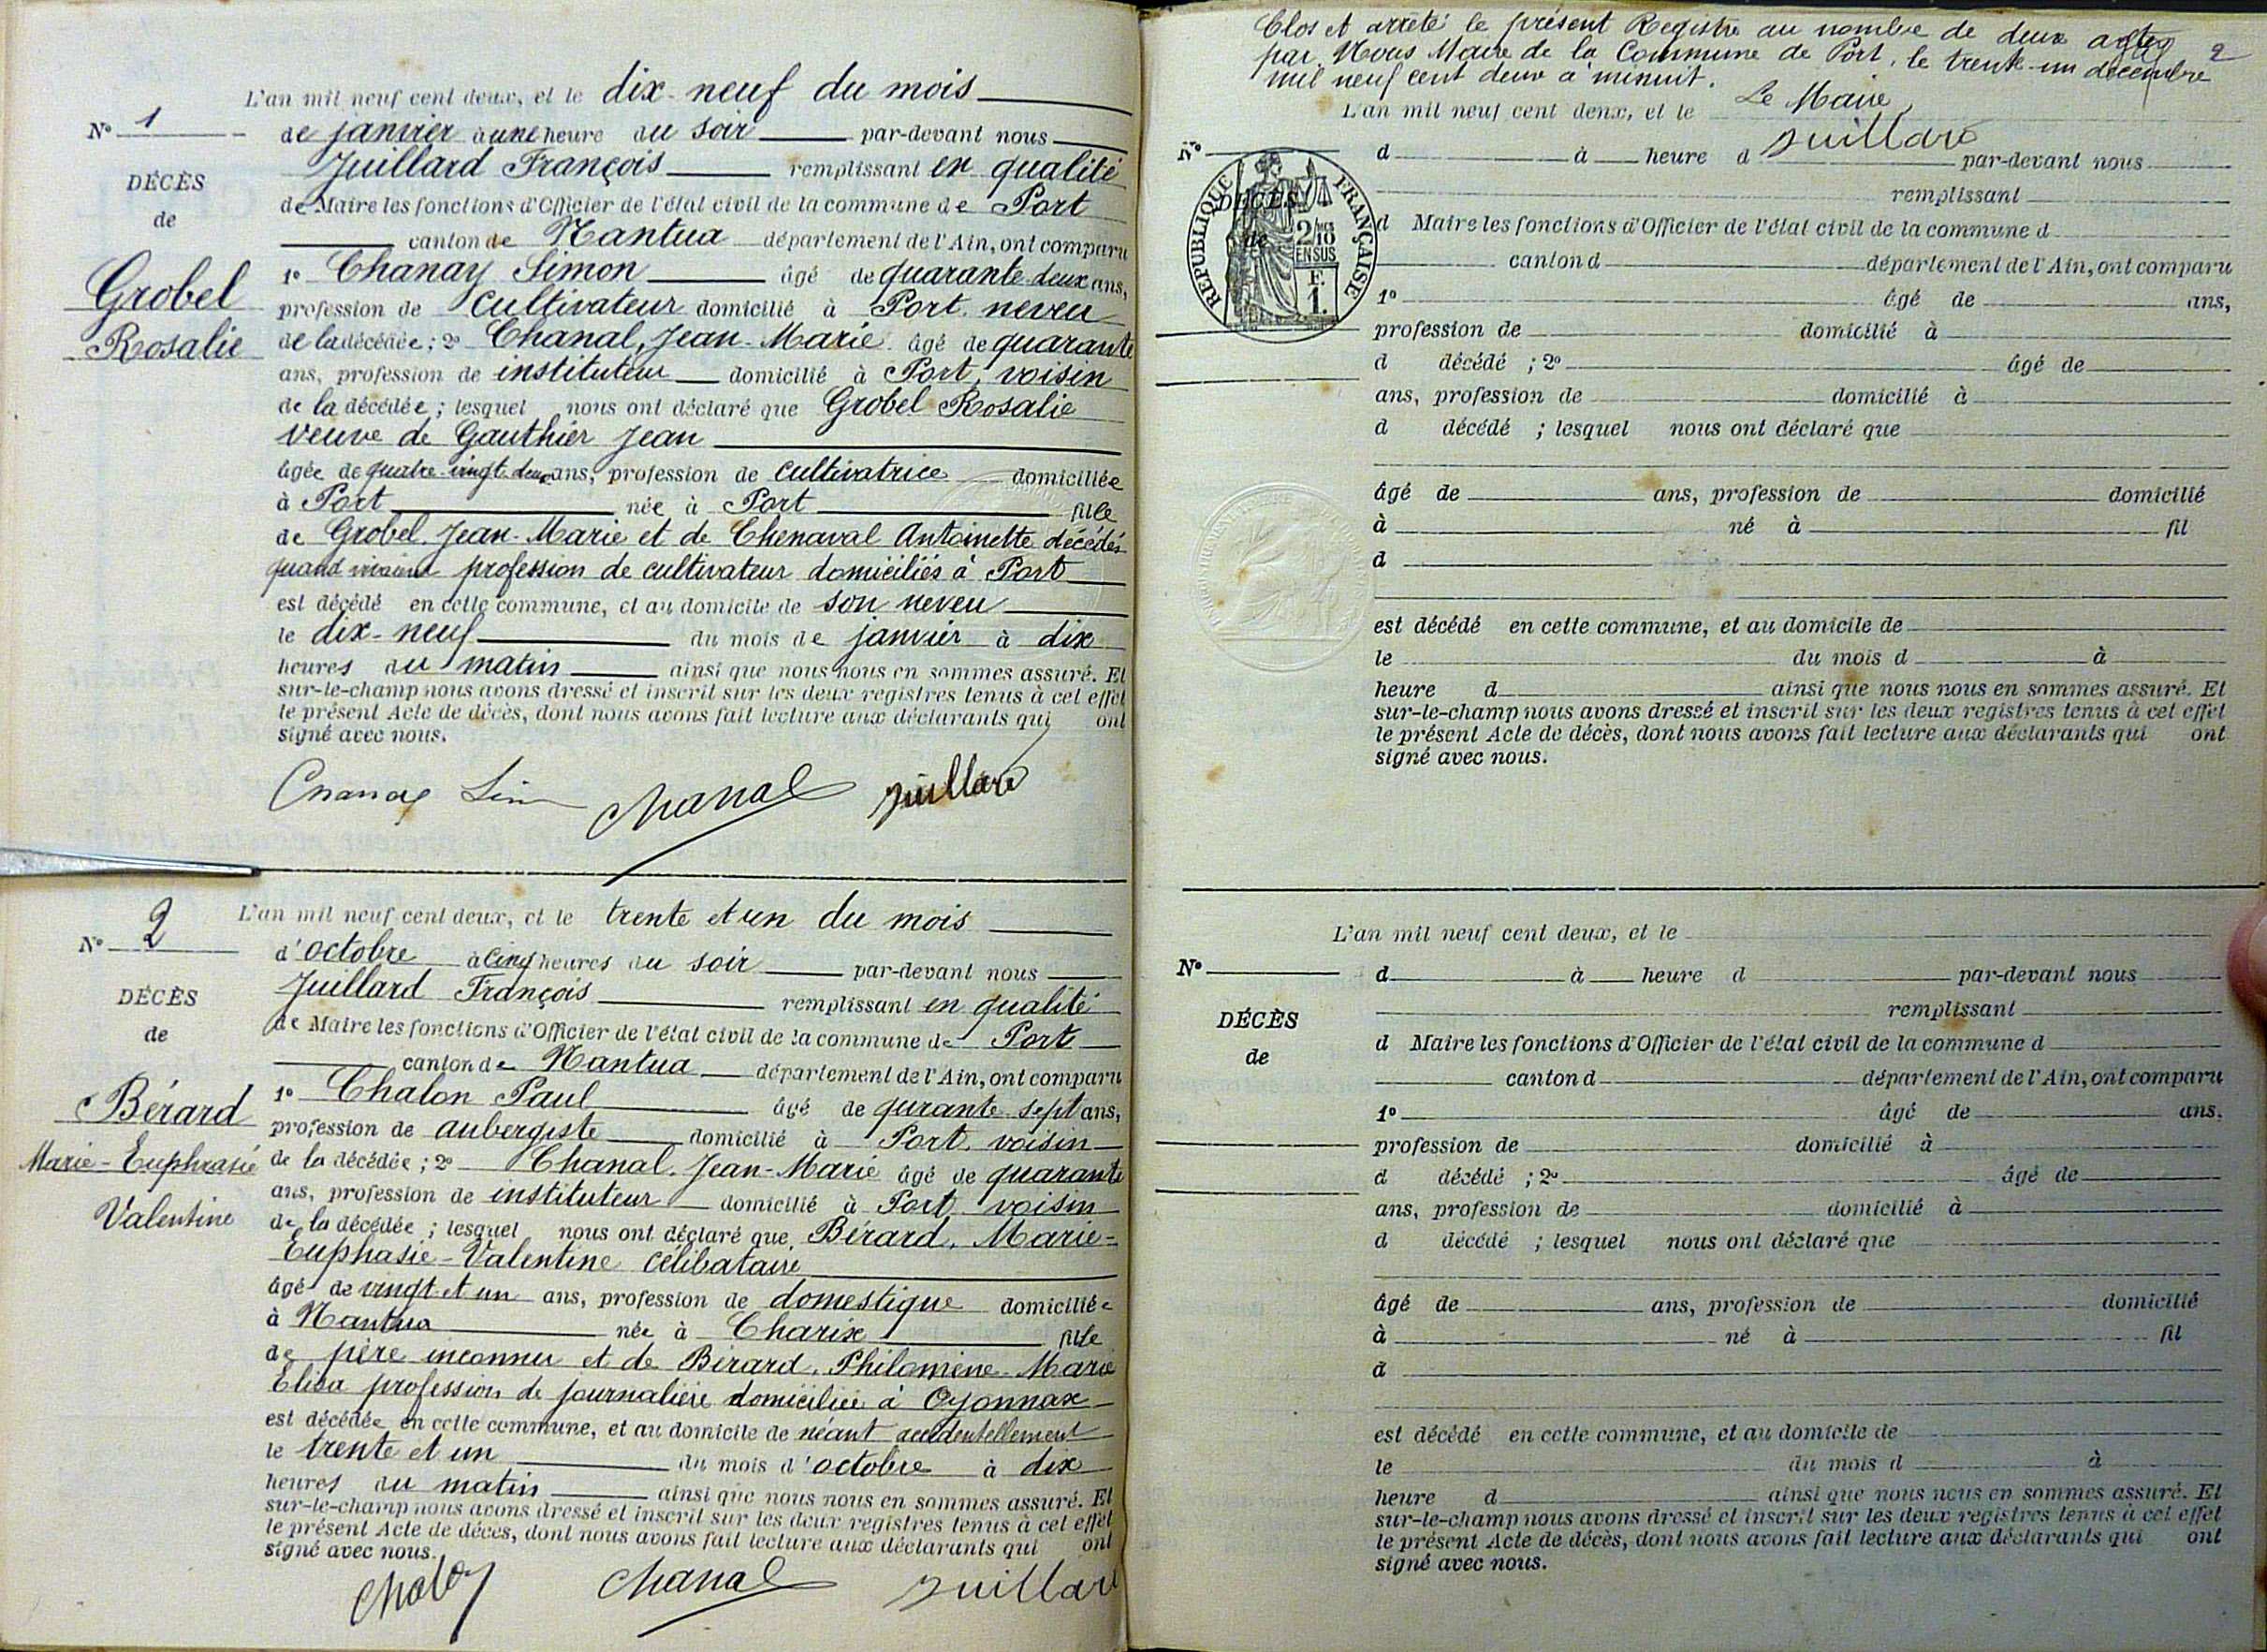 L'an mil neuf cent deux, et le dix-neuf du mois
N° 1
de janvier à une heure du soir par-devant nous
Juillard François remplissant en qualité
DÉCÈS
de Maire les fonctions d'Officier de l'état civil de la commune de Port
de
canton de Nantua département de l'Ain, ont comparu
1° Chanay Simon âgé de quarante deux ans,
Grobel
profession de cultivateur domicilié à Port, neveu
Rosalie
de la décédée ; 2° Chanal, Jean-Marie âgé de quarante
ans, profession de instituteur domicilié à Port, voisin
de la décédée ; lesquel nous ont déclaré que Grobel Rosalie
veuve de Gauthier Jean
âgée de quatre-vingt-deux ans, profession de cultivatrice domiciliée
à Port née à Port fille
de Grobel, Jean-Marie et de Chenaval Antoinette décédés
quand vivaient profession de cultivateur domiciliés à Port
est décédé en cette commune, et au domicile de son neveu
le dix-neuf du mois de janvier à dix
heures du matin ainsi que nous nous en sommes assuré. Et
sur-le-champ nous avons dressé et inscrit sur les deux registres tenus à cet effet
le présent Acte de décès, dont nous avons fait lecture aux déclarants qui ont
signé avec nous.
Chanay Chanal Juillard
L'an mil neuf cent deux, et le trente et un du mois
N° 2
d'octobre à cinq heures du soir par-devant nous
DÉCÈS
Juillard François remplissant en qualité
de
de Maire les fonctions d'Officier de l'état civil de la commune de Port
canton de Nantua département de l'Ain, ont comparu
Bérard
1° Chalon Paul âgé de qurante sept ans,
profession de aubergiste domicilié à Port, voisin
Marie-Euphrasie
de la décédée ; 2° Chanal, Jean-Marie âgé de quarante
ans, profession de instituteur domicilié à Port voisin
Valentine
de la décédée ; lesquel nous ont déclaré que Bérard, Marie=
Euphasie-Valentine célibataire
âgé de vingt et un ans, profession de domestique domiciliée
à Nantua née à Charix fille
de père inconnu et de Bérard, Philomène-Marie
Elisa profession de journalière domiciliée à Oyonnax
est décédée en cette commune, et au domicile de néant accidentellement
le trente et un du mois d'octobre à dix
heures du matin ainsi que nous nous en sommes assuré. Et
sur-le-champ nous avons dressé et inscrit sur les deux registres tenus à cet effet
le présent Acte de décès, dont nous avons fait lecture aux déclarants qui ont
signé avec nous.
Chalon Chanal Juillard
Clos et arrêté le présent Registre au nombre de deux actes 2
par Nous Maire de la Commune de Port, le trente-un décembre
mil neuf cent deux à minuit.
Le Maire
L'an mil neuf cent deux, et le
Juillard
N° d à heure d par-devant nous
remplissant
DÉCÈS
de
RÉPUBLIQUE FRANÇAISE
2/10
EN SUS
F.
1.
d Maire les fonctions d'Officier de l'état civil de la commune d
canton d département de l'Ain, ont comparu
1° âgé de ans,
profession de domicilié à
d décédé ; 2° âgé de
ans, profession de domicilié à
d décédé ; lesquel nous ont déclaré que
âgé de ans, profession de domicilié
à né à fil
d
est décédé en cette commune, et au domicile de
le du mois d à
heure d ainsi que nous nous en sommes assuré. Et
sur-le-champ nous avons dressé et inscrit sur les deux registres tenus à cet effet
le présent Acte de décès, dont nous avons fait lecture aux déclarants qui ont
signé avec nous.
L'an mil neuf cent deux, et le
N° d à heure d par-devant nous
remplissant
DÉCÈS
d Maire les fonctions d'Officier de l'état civil de la commune d
de
canton d département de l'Ain, ont comparu
1° âgé de ans,
profession de domicilié à
d décédé ; 2° âgé de
ans, profession de domicilié à
d décédé ; lesquel nous ont déclaré que
âgé de ans, profession de domicilié
à né à fil
d
est décédé en cette commune, et au domicile de
le du mois d à
heure d ainsi que nous nous en sommes assuré. Et
sur-le-champ nous avons dressé et inscrit sur les deux registres tenus à cet effet
le présent Acte de décès, dont nous avons fait lecture aux déclarants qui ont
signé avec nous.